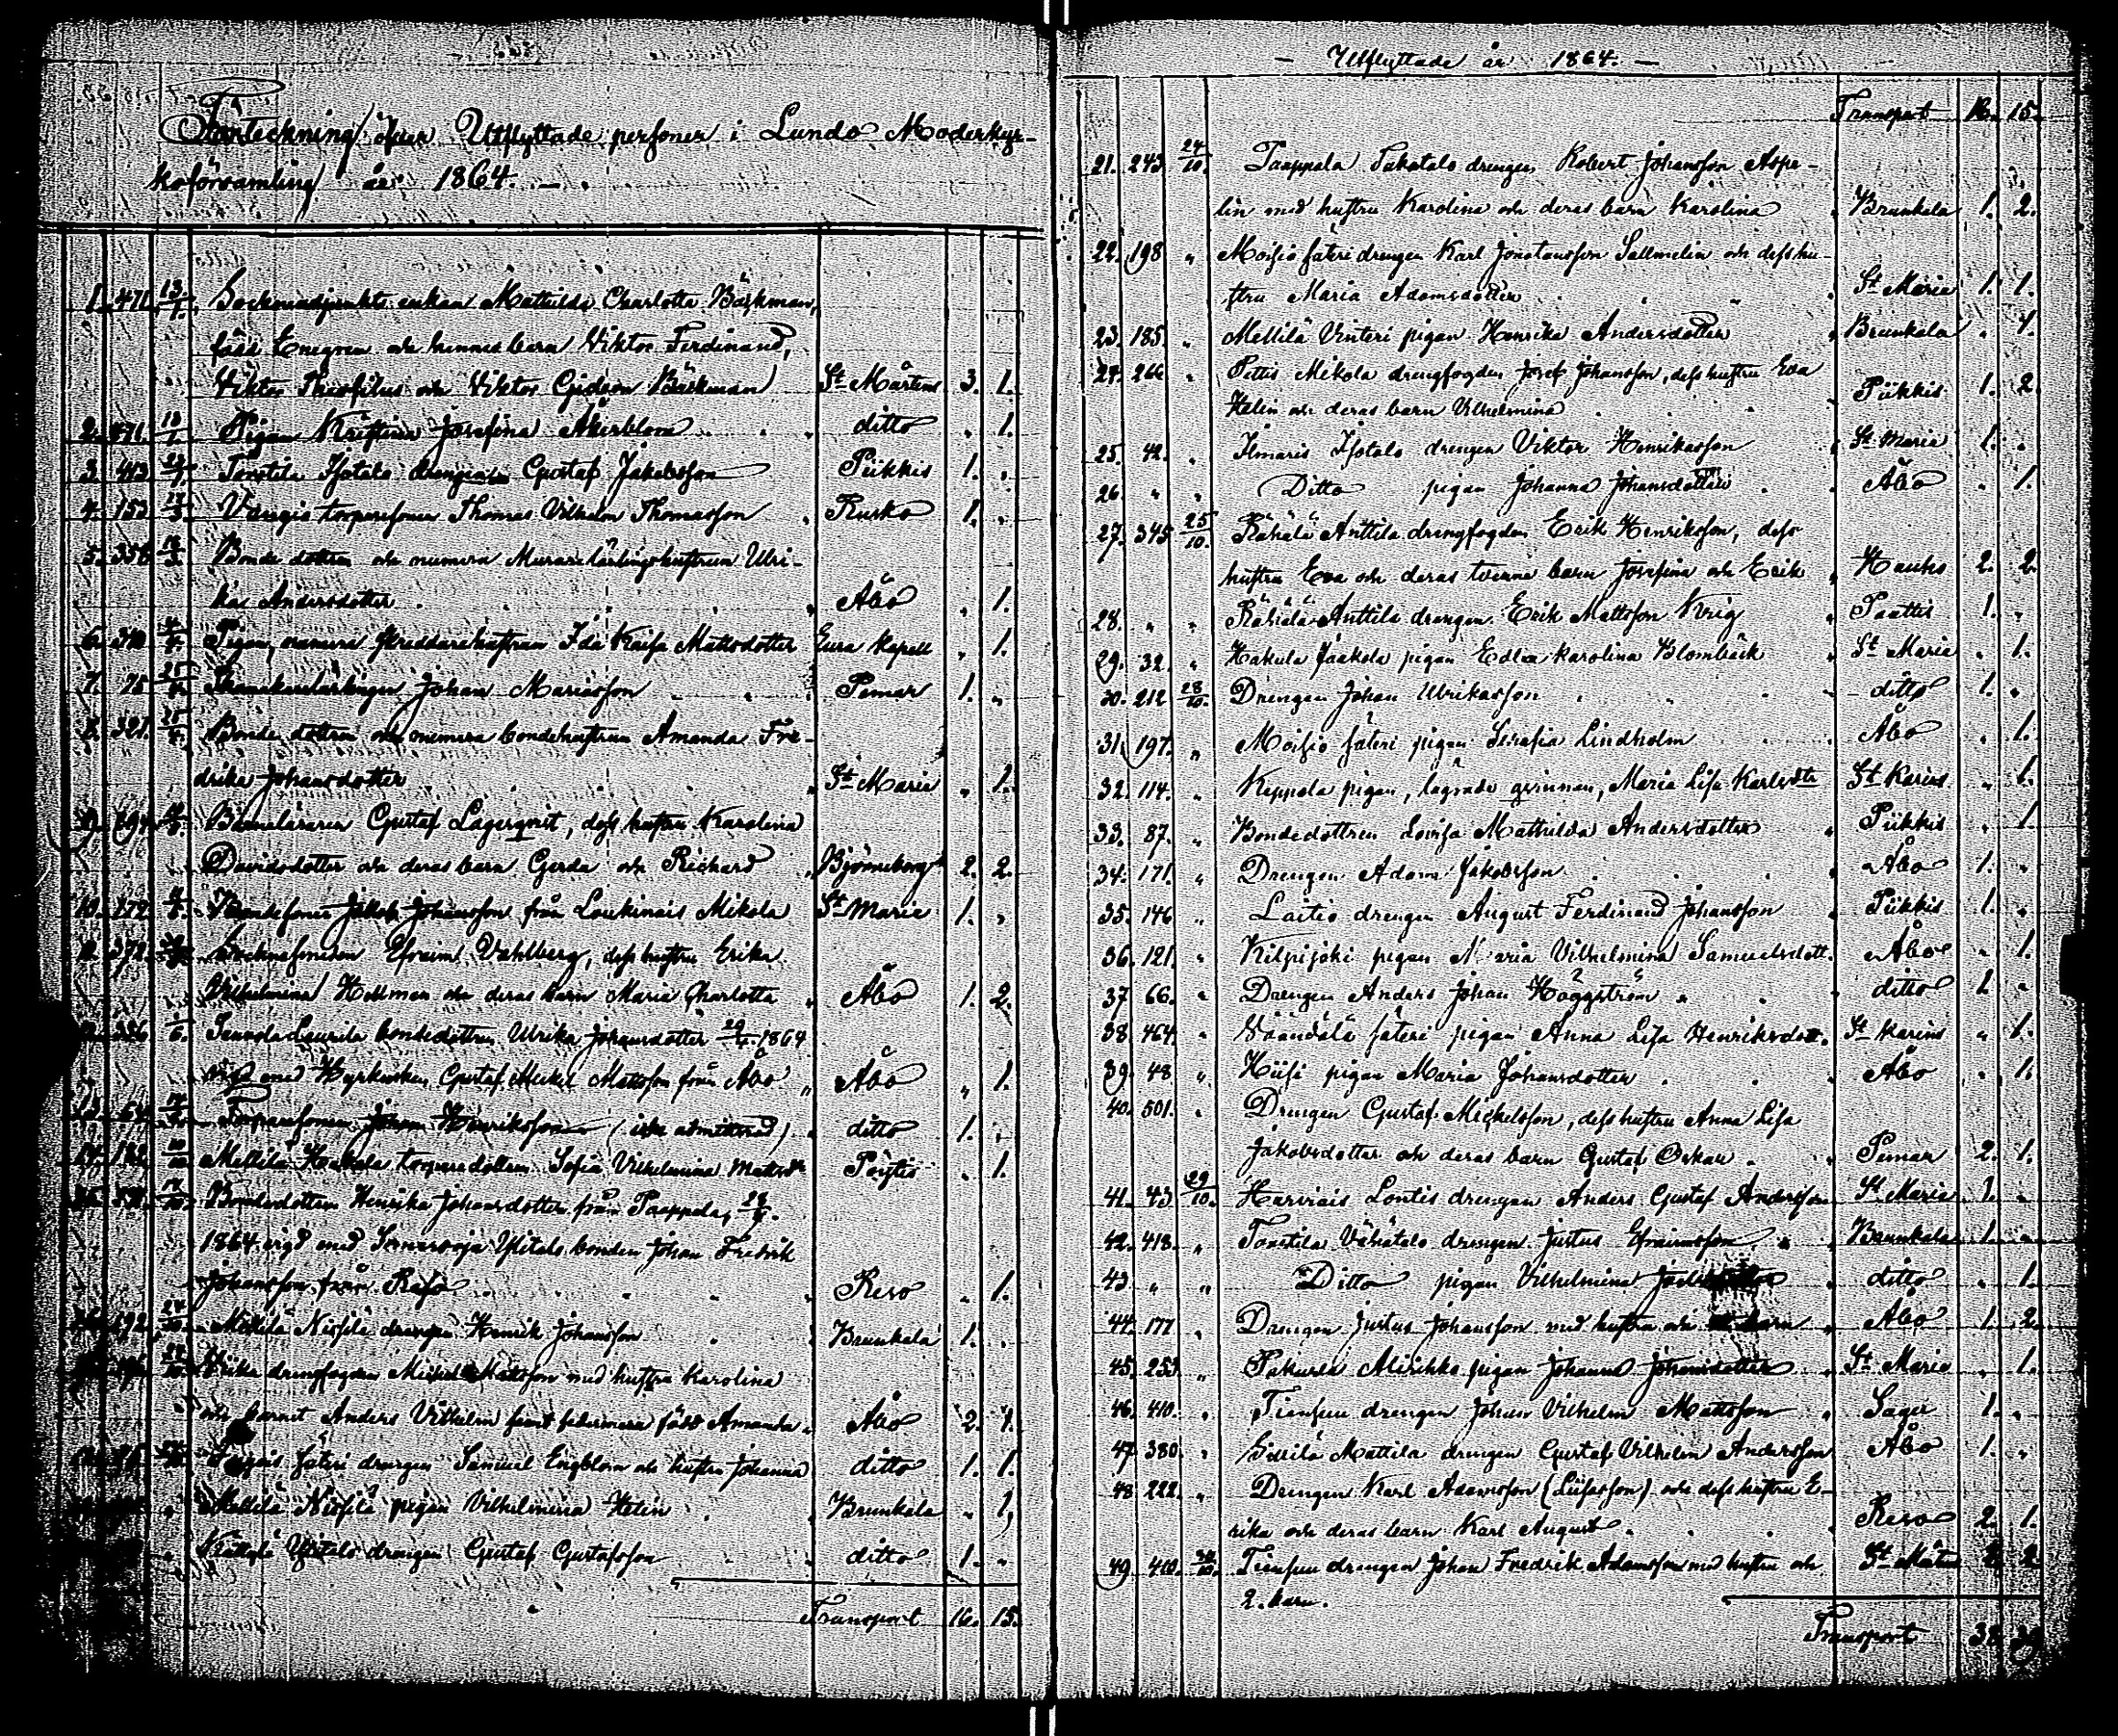 Förteckning öfver Utflyttade personer i Lundo Moderkyr-
koförsamling år 1864.
1. 471. 13/1. Sockneadjunkts enkan Mathilda Charlotta Bäckman,
född Enegren och hennes barn Viktor Ferdinand,
Viktor Theofilus och Viktor Gideon Bäckman St Mårtens 3. 1.
2. 471. 13/1. Pigan Kristina Josefina Åkerblom ditto „ 1.
3. 413. Tonttila Isotalo drengen Gustaf Jakobsson Piikkis 1. „
4. 153. torparesonen Thomas Vilhelm Thomasson Rusko 1. „
5. 356. Bonde dottren och numera Murarelärlingshustrun Ulri-
ka Andersdotter Åbo „ 1.
6. Pigan, numera skräddarehustrun Ida Kaisa Mattsdotter Eura Kapell „ 1.
7. 75. 25/4. Johan Mariasson Pemar 1. „
8. 321. 25/4. Bonde dottren och numera bondehustrun Amanda Fre-
drika Johansdotter St Marie „ 1.
9. Barnaläraren Gustaf Lagerqvist, dess hustru Karolina
Davidsdotter och deras barn Gerda och Richard Björneborg 2. 2.
10. 172. Bondesonen Jakob Johansson från Loukinais Mikola St Marie 1. „
372. Efraim Vahlberg, dess hustru Erika
Vilhelmina Hellman och deras barn Maria Charlotta Åbo 1. 2.
326. Laurila bondedottren Ulrika Johansdotter 29/4. 1864
vigd med Hyrkusken Gustaf Mickel Mattsson från Åbo „ Åbo „ 1.
64. Torparesonen Johan Henriksson (icke admitterad) ditto 1. „
Mellilä Hakala torparedottren Sofia Vilhelmina Mattsdr Pöytis „ 1.
Bondedottren Henrika Johansdotter från Paappala,
1864 vigd med Ylitalo bonden Johan Fredrik
Johansson från Reso Reso „ 1.
192. 24/10. Mellilä Nissilä drengen Henrik Johansson Brunkala 1. „
drengfogden Mickel Mattsson med hustru Karolina
och barnet Anders Vilhelm samt Amanda „ Åbo 2. 1.
Säteri drengen Samuel Engblom och hustru Johanna ditto 1. 1.
Mellilä Nissilä pigan Vilhelmina Helin Brunkala „ 1.
Ylitalo drengen Gustaf Gustafsson „ ditto 1. „
Transport 16. 15.
— Utflyttade år 1864. —
Transport 16. 15.
21. 243. 24/10. Paappala Sakatalo drengen Robert Johansson Aspe-
lin med hustru Karolina och deras barn Karolina Brunkala 1. 2.
22. 198 „ Moisio säteri drengen Karl Jonatansson Sallmelin och dess hu-
stru Maria Adamsdotter St Marie 1. 1.
23. 185. „ Mellilä Vinteri pigan Henrika Andersdotter Brunkala „ 1.
24. 266 „ Pettis Mikola drengfogden Josef Johansson, dess hustru Eva
Helin och deras barn Vilhelmina Piikkis 1. 2.
25. 42. „ Ilmaris Isotalo drengen Viktor Henriksson St Marie 1. „
26. „ „ Ditto pigan Johanna Johansdotter Åbo „ 1.
27. 345. 25/10. Rähälä Anttila drengfogden Erik Henriksson, dess
hustru Eva och deras tvenne barn Josefina och Erik Hauho 2. 2.
28. „ „ Rähälä Anttila drengen Erik Mattsson Krig Paattis 1. „
29. 32. „ Hakula Jaakola pigan Edla Karolina Blombäck St Marie „ 1.
30. 212 28/10. Drengen Johan Ulrikasson ditto 1. „
31. 197. „ Moisio säteri pigan Serafia Lindholm Åbo „ 1.
32. 114. „ Keppola pigan, lägrade qvinnan, Maria Lisa Karlsdtr St Karins „ 1.
33. 87. „ Bondedottren Lovisa Mathilda Andersdotter Piikkis „ 1
34. 171. „ Drengen Adam Jakobsson Åbo 1. „
35. 146 „ Laitio drengen August Ferdinand Johansson Piikkis 1. „
36. 121. „ Kilpijoki pigan Maria Vilhelmina Samuelsdott. Åbo „ 1.
37. 66. „ Drengen Anders Johan Häggström ditto 1. „
38. 464. „ Väändälä säteri pigan Anna Lisa Henriksdott. St Karins „ 1.
39. 48 „ Hiisi pigan Maria Johansdotter Åbo „ 1.
40. 501. „ Drengen Gustaf Mickelsson, dess hustru Anna Lisa
Jakobsdotter och deras barn Gustaf Oskar Pemar 2. 1.
41. 43 29/10. Harvais Lontis drengen Anders Gustaf Andersson St Marie 1. „
42. 418. „ Tonttila Vähätalo drengen Justus Efraimsson Brunkala 1. „
43. „ „ Ditto pigan Vilhelmina ditto „ 1.
44. 177 „ Drengen Justus Johansson med hustru och barn „ Åbo 1. 2.
45. 253 „ Pakurla Alirikko pigan Johanna Johansdotter St Marie „ 1.
46. 410. „ Tiensuu drengen Johan Vilhelm Mattsson Sagu 1. „
47. 380. „ Sillilä Mattila drengen Gustaf Vilhelm Andersson Åbo 1. „
48 222. „ Drengen Karl Adamsson (Liisasson) och dess hustru E-
rika och deras barn Karl August Reso 2. 1.
49 410. 30/10. Tiensuu drengen Johan Fredrik Adamsson med hustru och St Mårten 2. 2
2. barn.
Transport